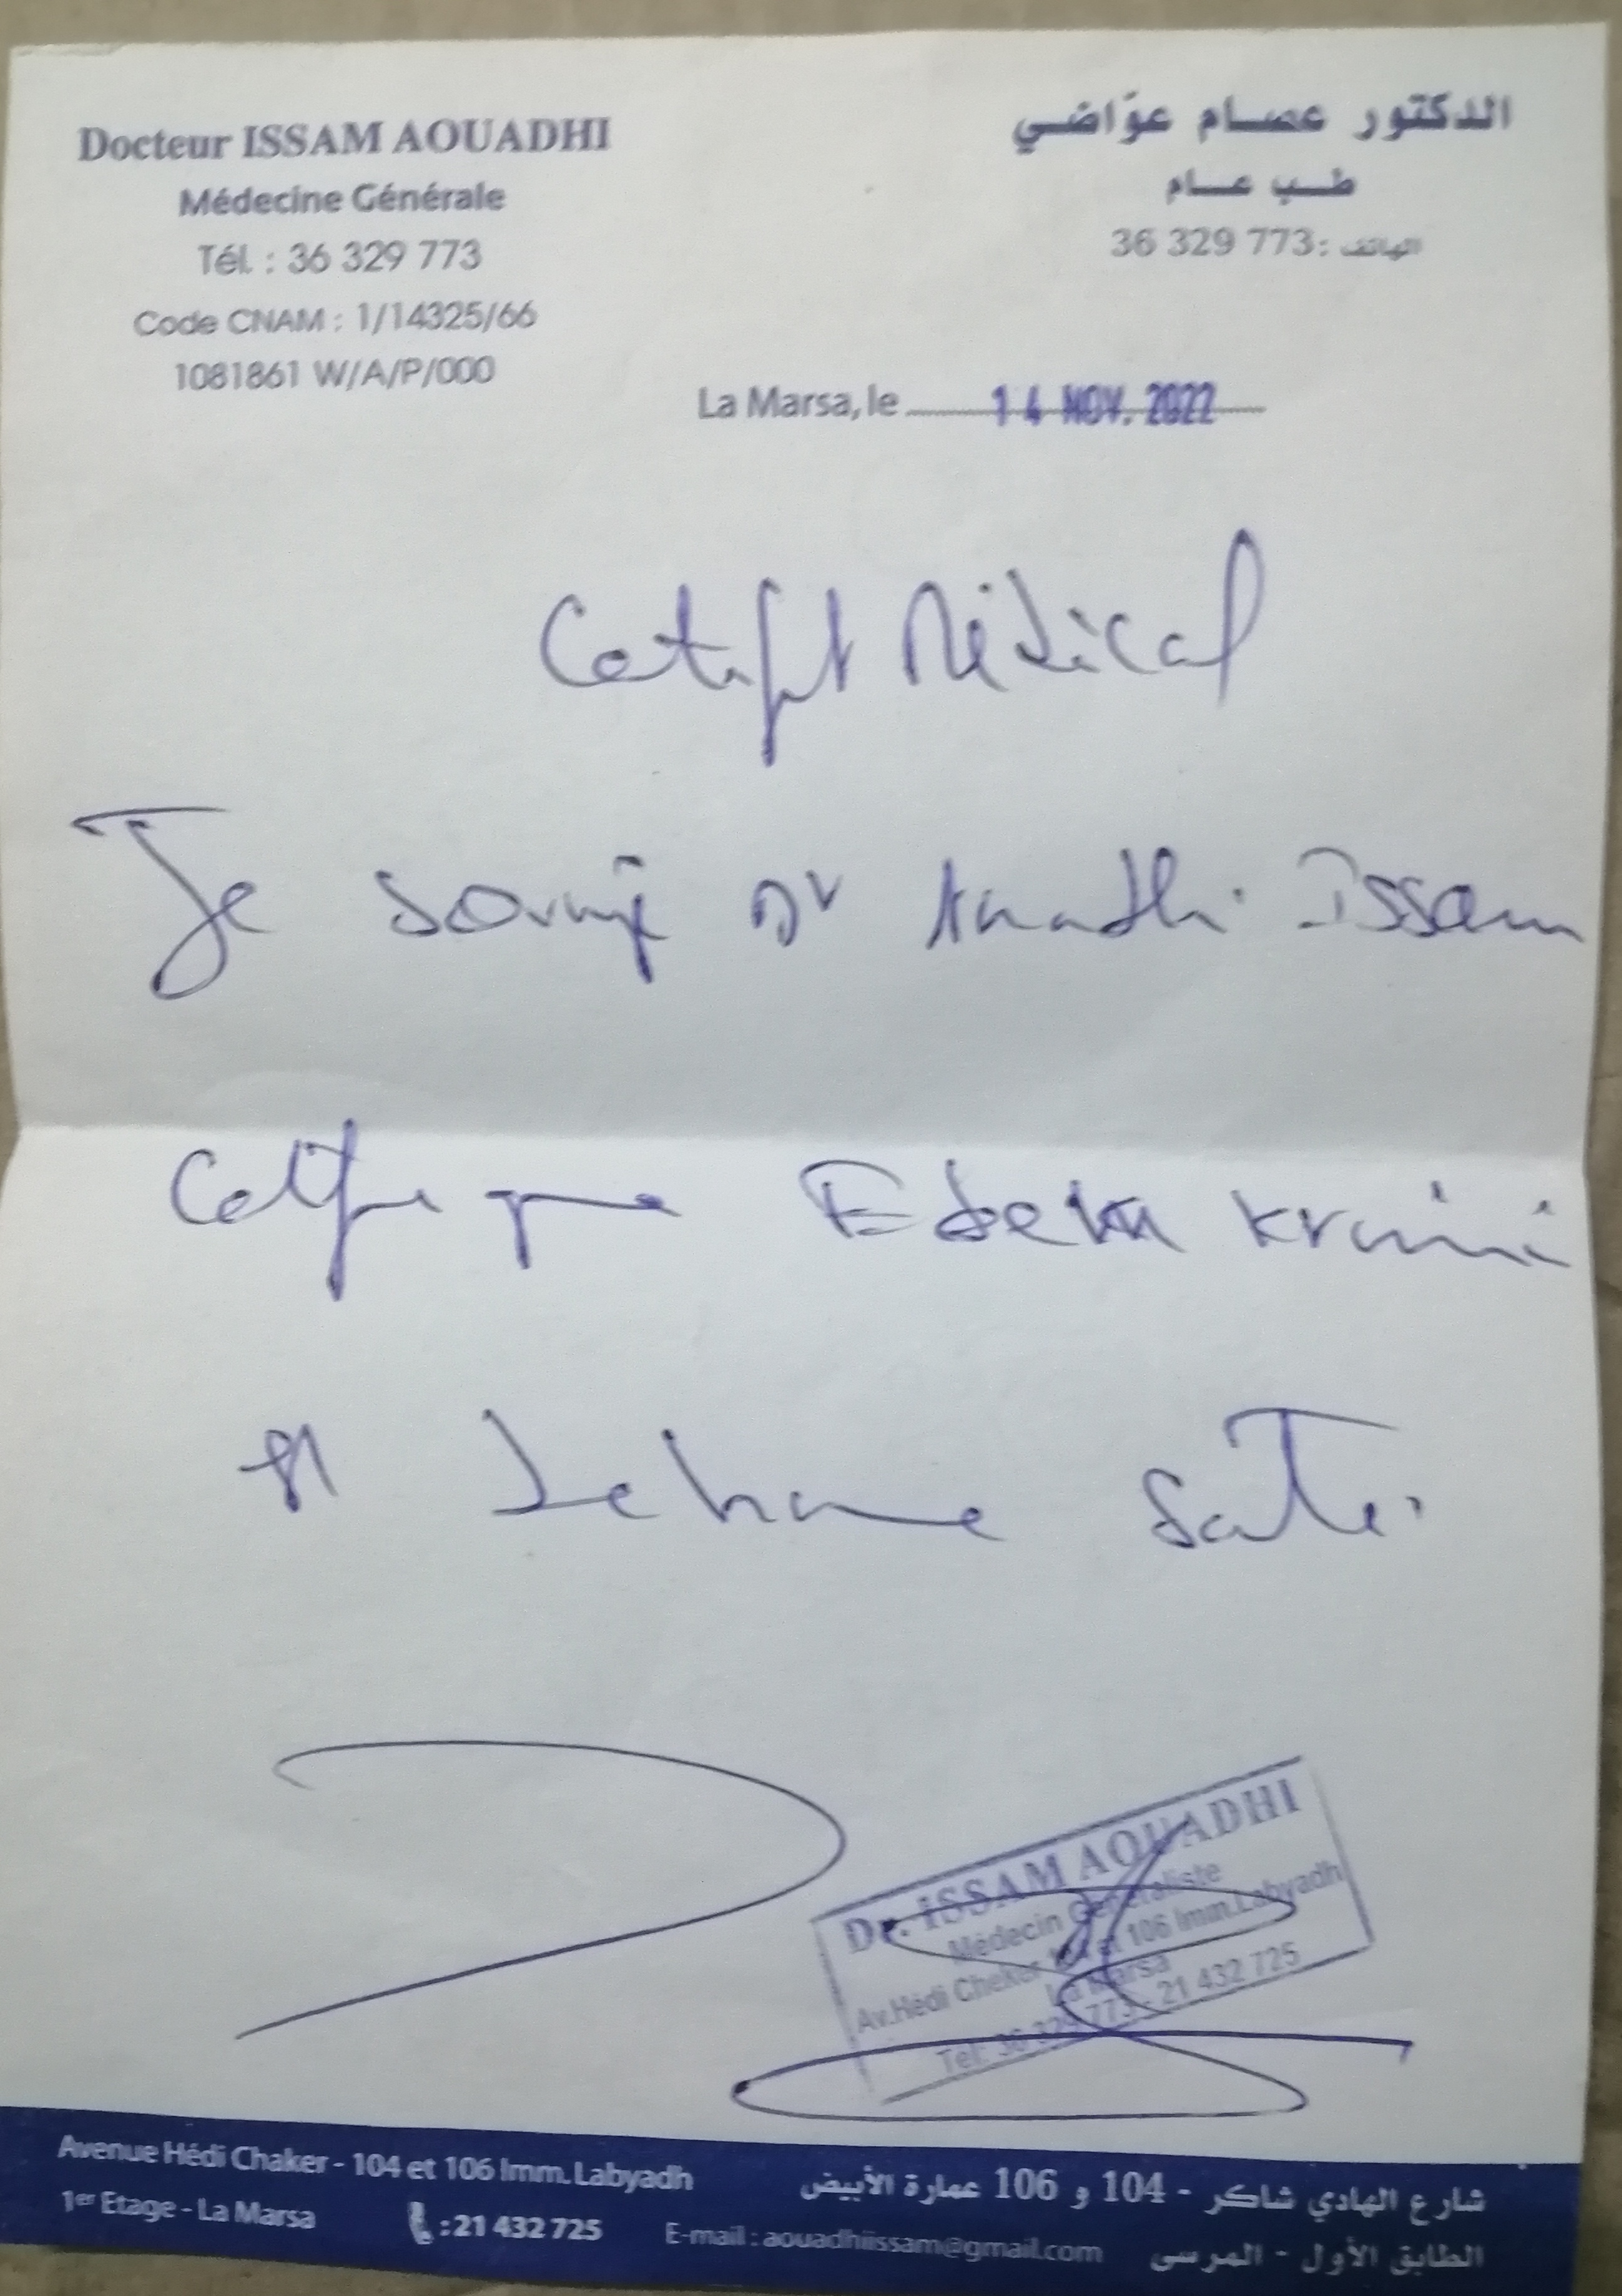 Docteur ISSAM AOUADHI
Médecine Générale
Tél. : 36 329 773
Code CNAM : 1/14325/66
1081861 W/A/P/000
الدكتور عصام عوّاضي
طب عام
الهاتف : 36 329 773
La Marsa, le 14 NOV. 2022
Certificat Médical
Je soussigné Dr Aouadhi Issam
Certifie que Krimi
est bonne Santé.
Dr. ISSAM AOUADHI
Médecin Généraliste
Av.Hédi Cheker 104 et 106 Imm.Labyadh
La Marsa
Tel: 36 329 773 - 21 432 725
Avenue Hédi Chaker - 104 et 106 Imm. Labyadh
1er Etage - La Marsa
: 21 432 725
E-mail : aouadhiissam@gmail.com
شارع الهادي شاكر - 104 و 106 عمارة الأبيض
الطابق الأول - المرسى